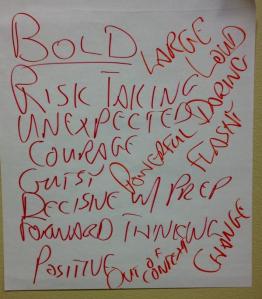 BOLD
LARGE
LOUD
RISK TAKING
UNEXPECTED
COURAGE
POWERFUL
DARING
FLASHY
GUTSY
DECISIVE W/ PREP
FORWARD THINKING
POSITIVE
OUT OF
CONTEXT
CHANGE